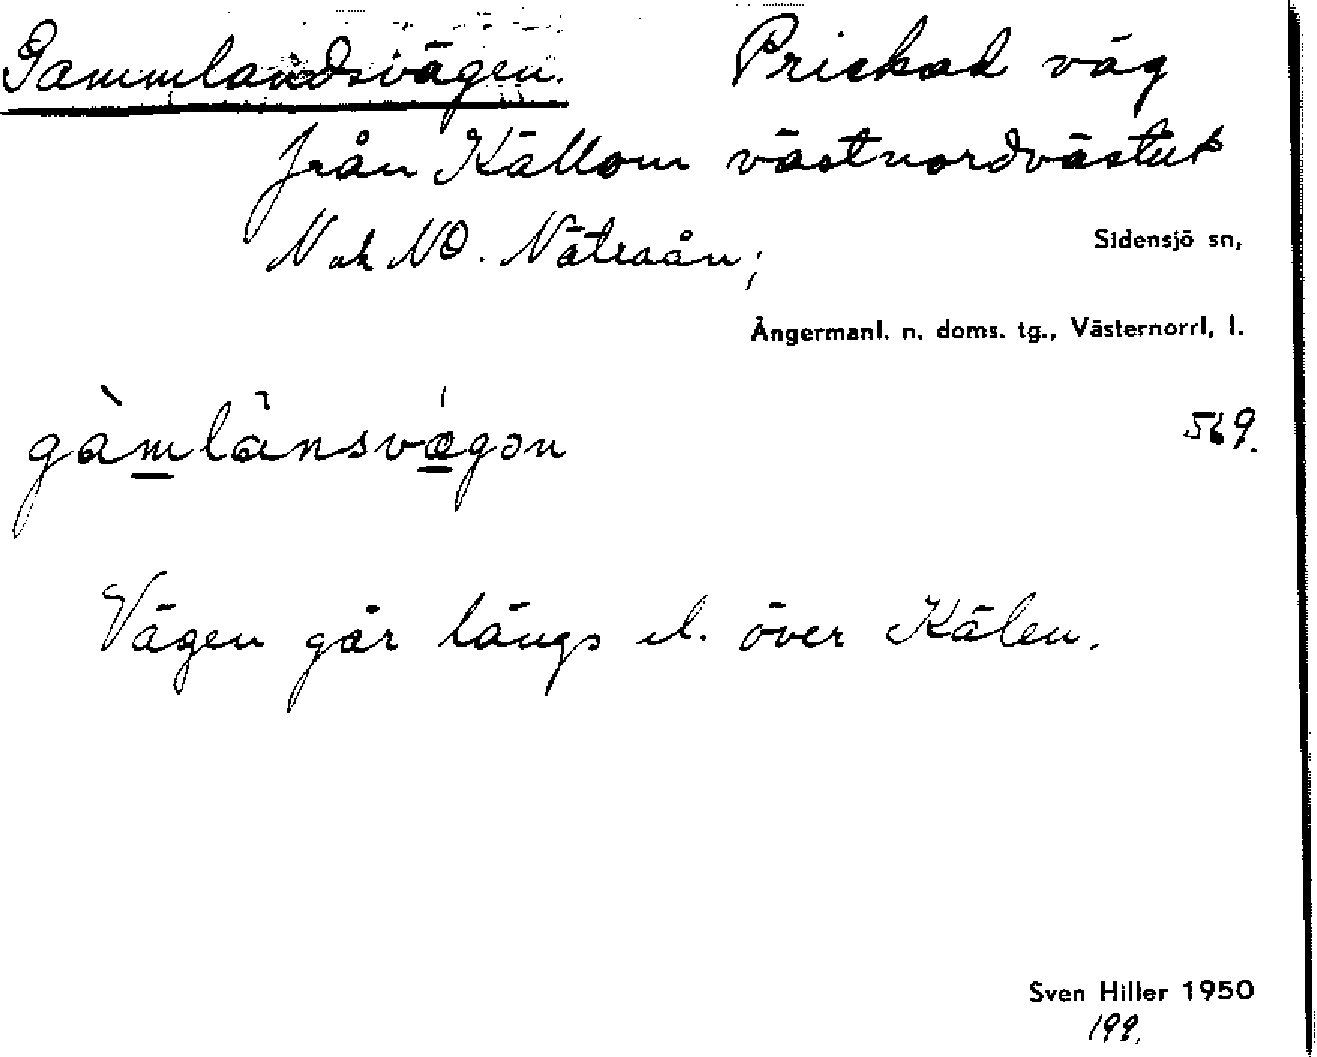 Gammlandsvägen. Prickad väg
från Källom västnordvästut
N ok NO. Nätraån;
Sidensjö sn,
Ångermanl. n. doms. tg., Västernorrl, l.
gàmlànsvǽgən
569.
Vägen går längs el. över Kälen.
Sven Hiller 1950
199.